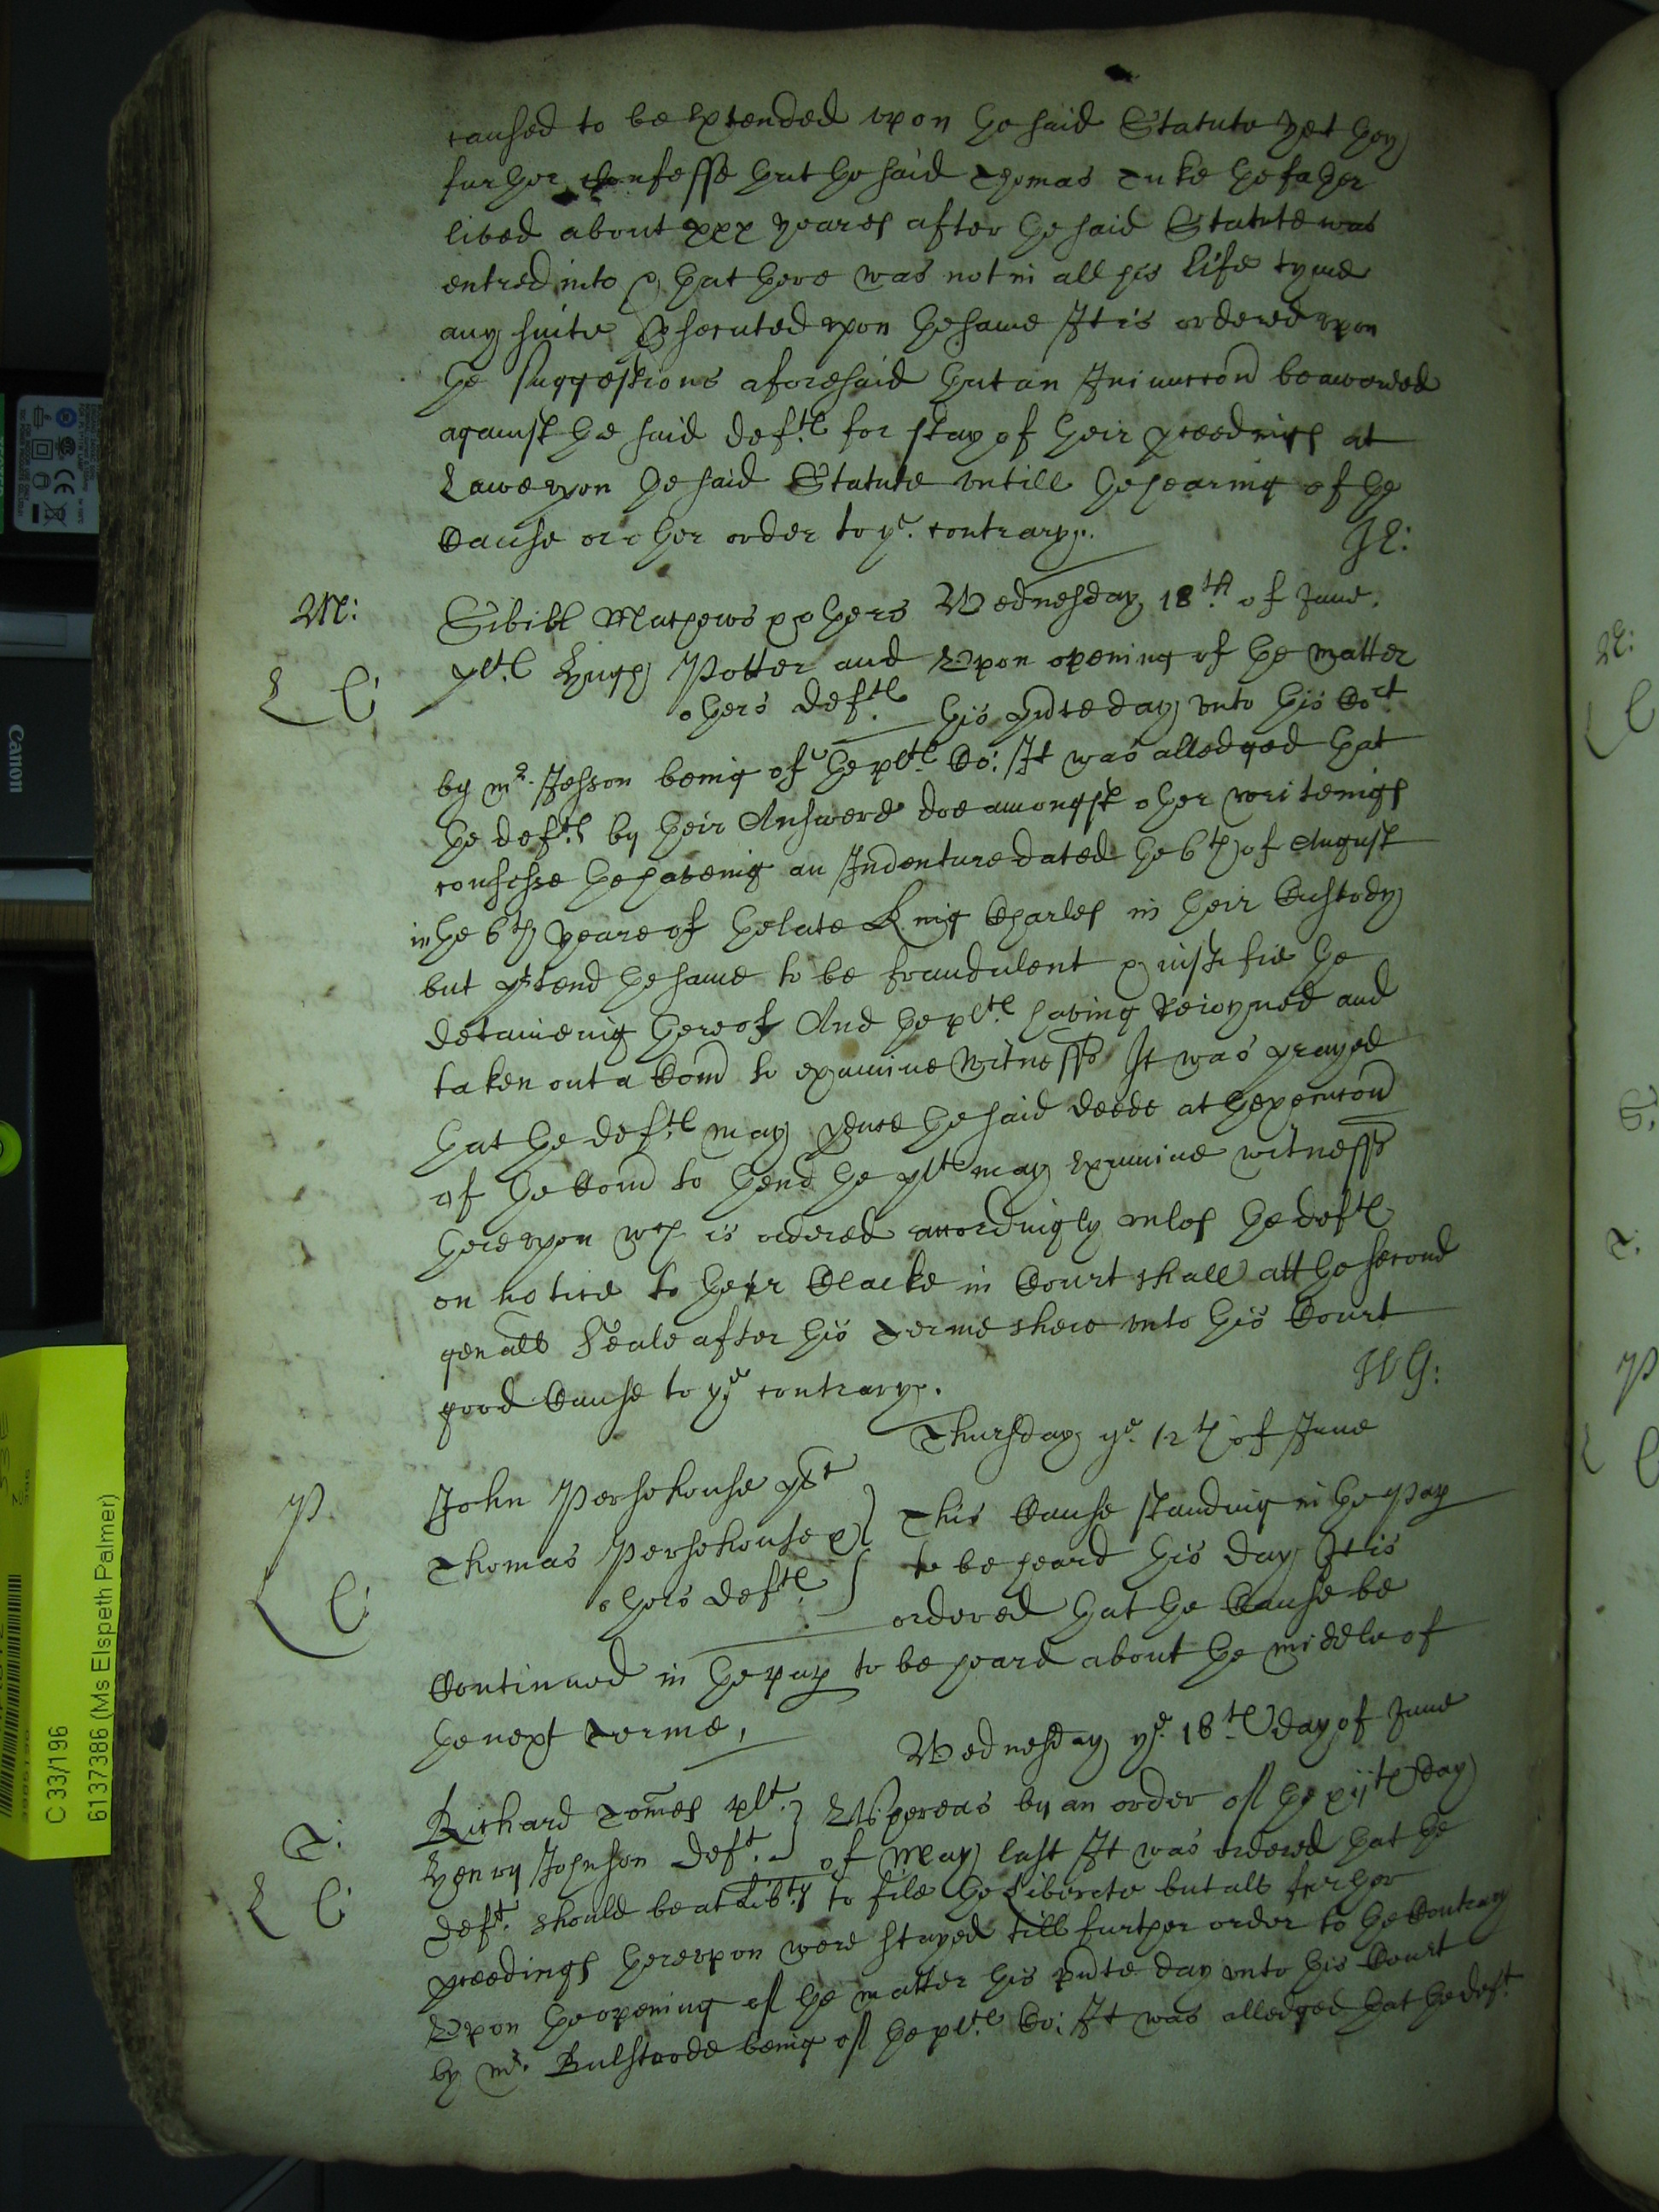 caused to be extended vpon the said Statute yet they
further confesse that the said Thomas Tuke the father
lived about xxx yeares after the said Statute was
entred into & that there was not in all his life tyme
any suite prosecuted vpon the same It is ordered vpon
the suggestions aforesaid that an Iniunccon be awarded
against the said defts for stay of their proceedings at
Lawe vpon the said Statute vntill the hearing of the
Cause or other order to ye contrary.
JE:
M:
Sibill Mathews & others Wednesday 18th of June.
plts Hugh Potter and Vpon opening of the matter
L C
others defts this pnte day vnto this Cort
by mr. Jesson being of the plts Co: It was alledged that
the defts by their Answere doe amongst other writeings
confesse the haveing an Indenture dated the 6th of August
in the 6th yeare of the late King Charles in their Custody
but ptend the same to be fraudulent & iustifie the
detaineing thereof And the plts having reioyned and
taken out a Comn to examine witnesses It was prayed
that the defts may pduce the said deede at the execucon
of the Comn to thend the plts may examine witnesses
therevpon wch is ordered accordingly vnles the defts
on notice to their Clarke in Court shall att the second
genall Seale after this Terme shew vnto this Court
good Cause to ye contrary.
WG:
Thursday ye. 12th of June
P.
John Persehouse plt
This Cause standing in the pap
Thomas Persehouse &
to be heard this day It is
L C
others defts
ordered that the Cause be
Continued in the pap to be heard about the middle of
the next Terme,
Wednesday ye. 18th day of June
T:
Richard Tomes plt. Whereas by an order of the xijth day
Henry Johnson deft. of May last It was ordered that the
L C
deft. should be at Libty to file the Liberate but all further
proceedings therevpon were stayed till further order to the Contrary
Vpon the opening of the matter this pnte day vnto this Court
by mr. Bulstrode being of the plts Co: It was alledged that the deft.
Canon
C 33/196
6137386 (Ms Elspeth Palmer)